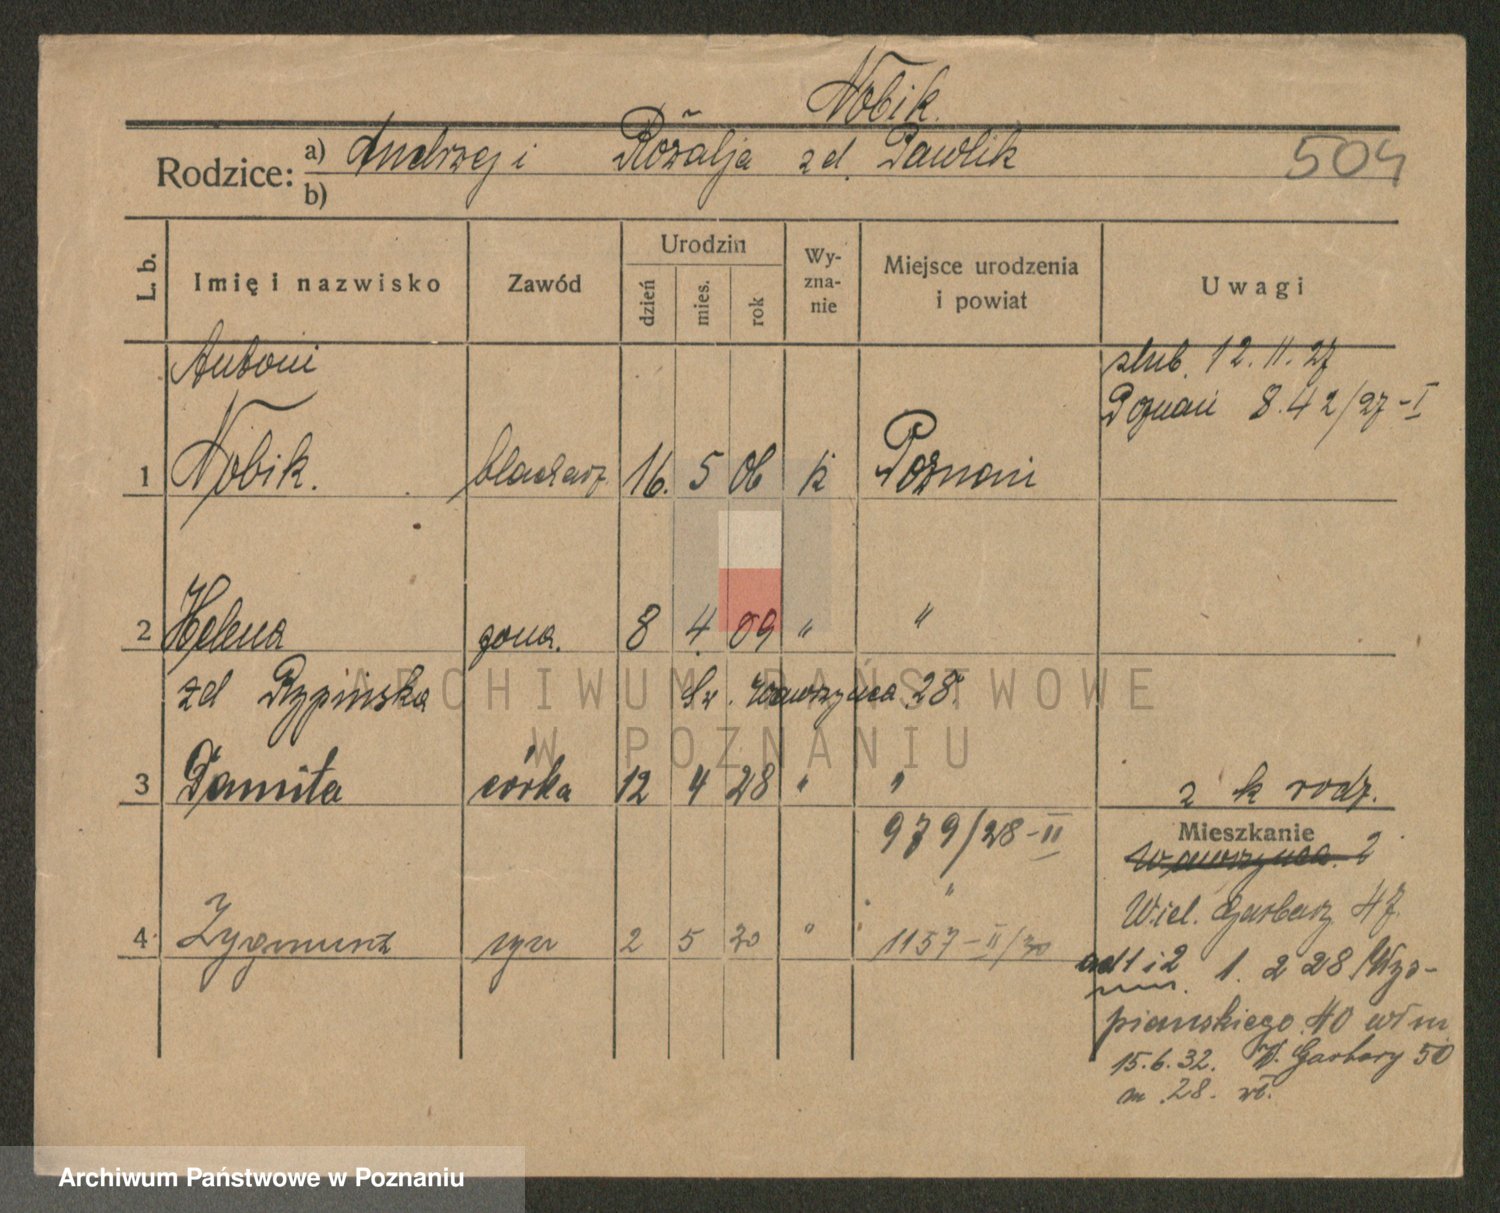 Nobik.
Rodzice: a) Andrzej i Rozalja zd. Pawlik 504
b)
L. b. Imię i nazwisko Zawód Urodzin dzień mies. rok Wy-zna-nie Miejsce urodzenia i powiat Uwagi
Antoni ślub. 12. II. 27
Poznań 8. 42/27-I
1 Nobik. blacharz 16. 5 06 k Poznań
2 Helena żona. 8 4. 09 " "
zd Rypińska Św. Wawrzyńca 28.
3 Damita córka 12 4 28 " " z k rodz.
979/28-II Mieszkanie
Wawrzyńca. 2
" Wiel. Garbary 47
4 Zygmunt syn 2 5 30 " 1157-II/30
ad 1 i 2 1. 2 28 Wys-
piańskiego 40 wł m
15.6.32. W. Garbary 50
m 28. wł.
ARCHIWUM PAŃSTWOWE
W POZNANIU
Archiwum Państwowe w Poznaniu